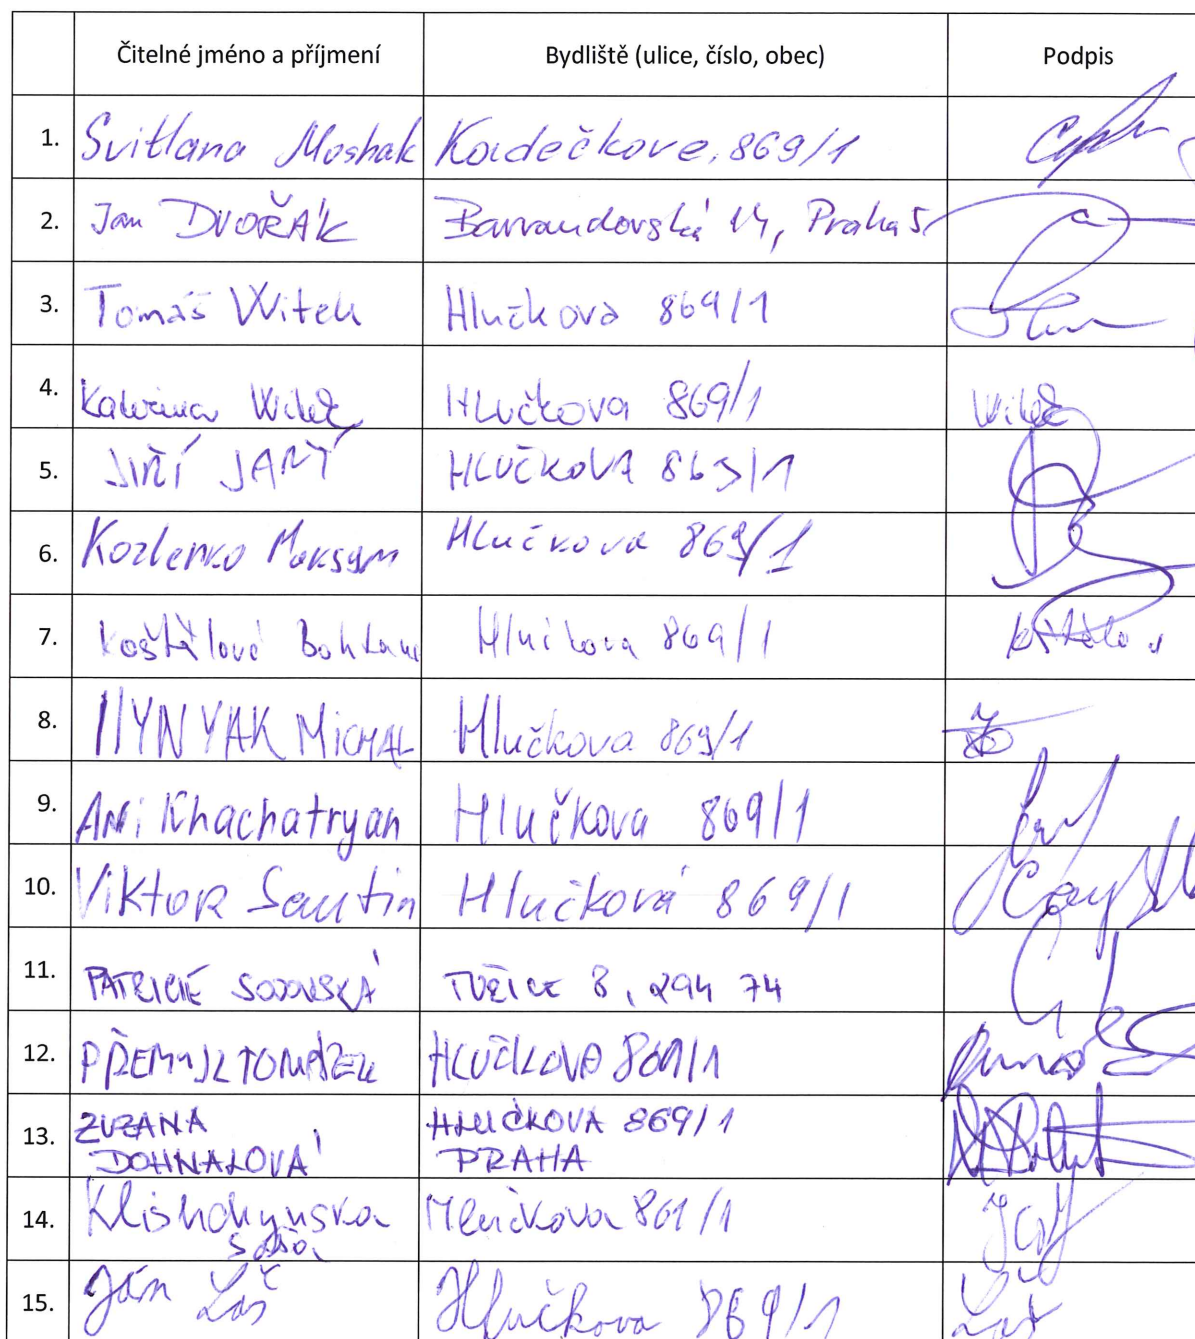 Čitelné jméno a příjmení Bydliště (ulice, číslo, obec) Podpis
1. Svitlana Moshak Kadečkove, 869/1
2. Jan DVOŘÁK Barrandovská 14, Praha 5
3. Tomáš Witek Hlučkova 869/1
4. Hlučkova 869/1
5. JIŘÍ HLUČKOVA 869/1
6. Kozlenko Maksym Hlučkova 869/1
7. Košťálová Bohdana Hlučkova 869/1
8. MICHAL Hlučkova 869/1
9. Ani Khachatryan Hlučkova 869/1
10. Viktor Sautin Hlučková 869/1
11. PATRICIE 8, 294 74
12. PŘEMYSL TOMÁŠEK HLUČKOVA 869/1
13. ZUZANA HLUČKOVA 869/1
DOHNALOVÁ PRAHA
14. Klishchynska Hlučkova 861/1
15. Ján Laš Hlučkova 869/1